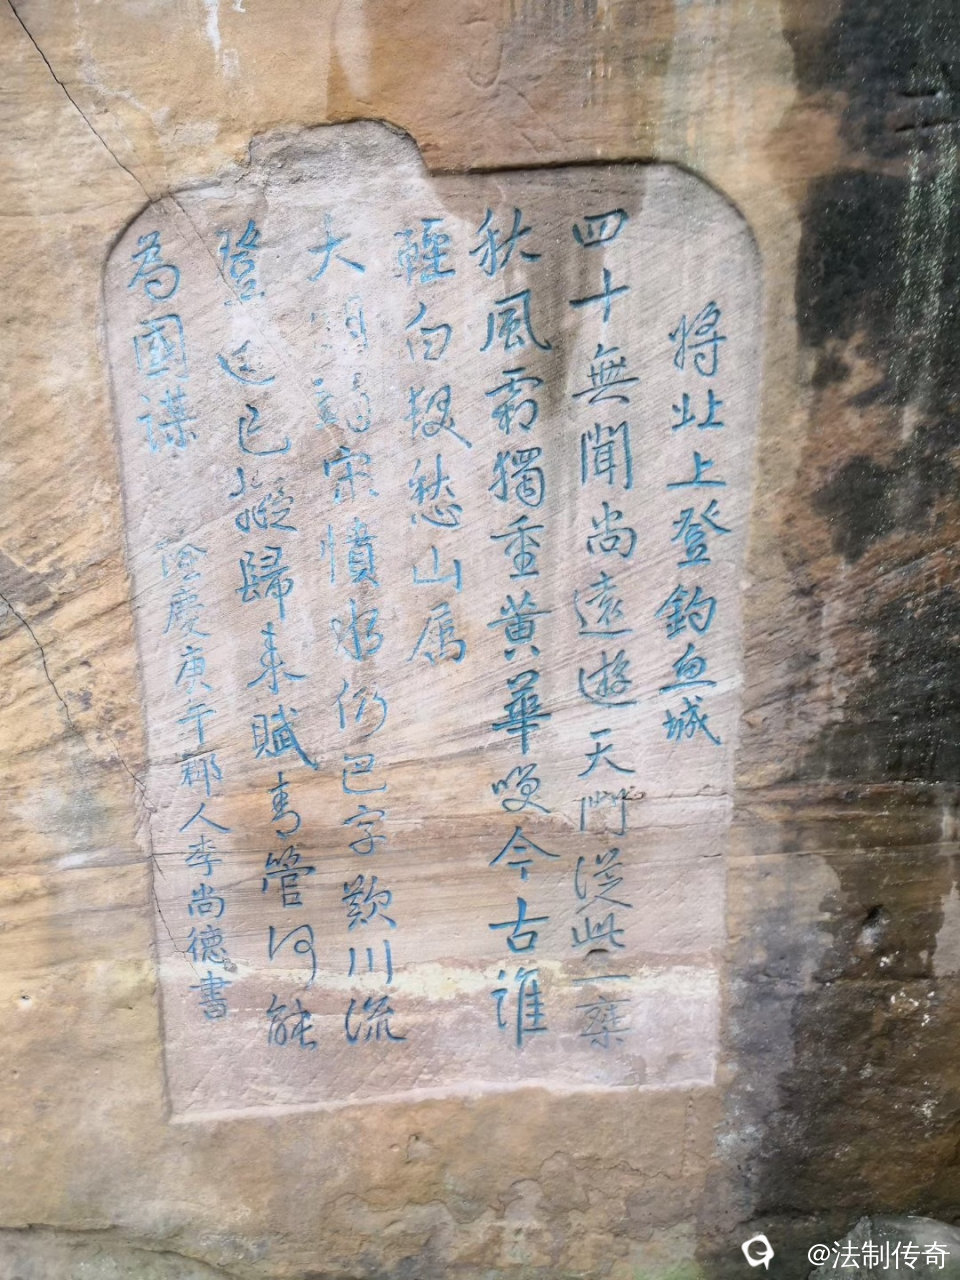 將北上登釣魚城
四十無聞尚遠遊天門從此
秋風霜獨重黄華嘆今古誰
輕白髮愁山属
大明 宋憤水仍巴字歎川流
登 已擬歸來賦 管何能
為國謀
隆慶庚午郡人李尚德書
@法制传奇